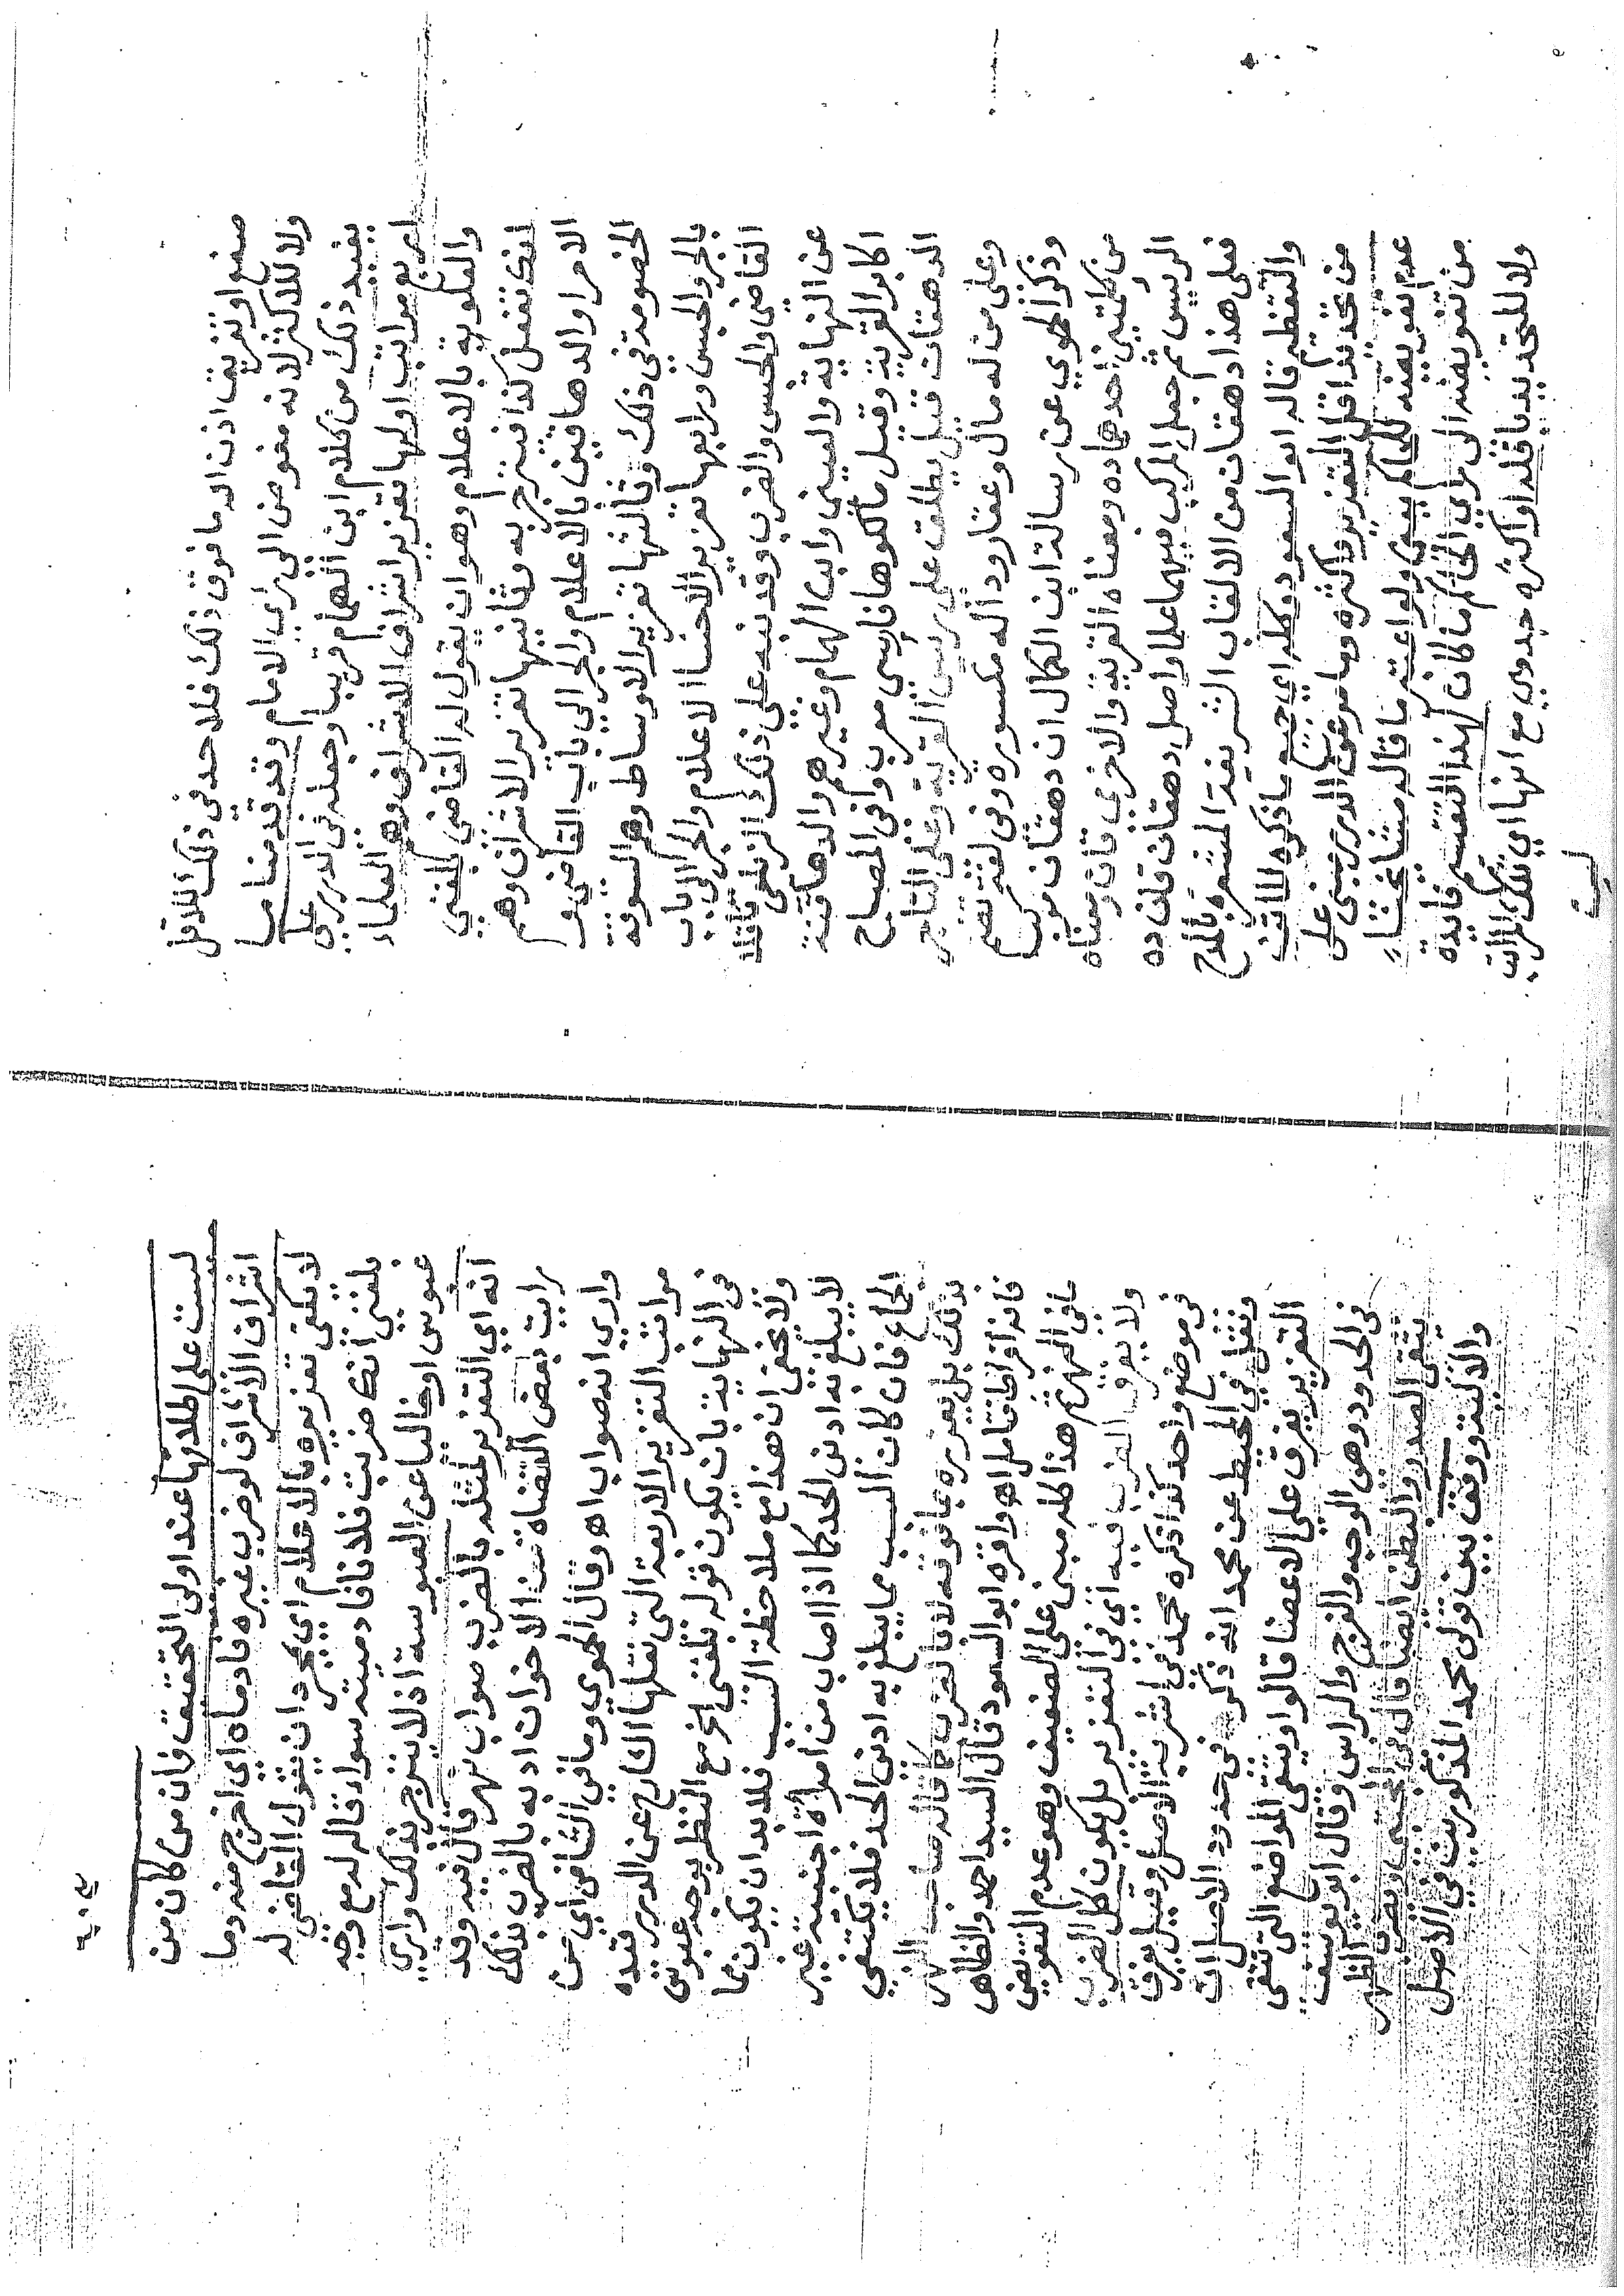 صفع او تفريق اذن اله ما فوق ذلك فلا حد في ذلك للاقل
ولا للاكثر لانه مفوض الى راي الامام وقد قدمنا ما
يفيد ذلك من كلام ابن الهمام قريبا وجعله في الدرر على
اربع مراتب اولها تعزير اشراف الاشراف وهم العلماء
والعلوية بالاعلام وهو ان يقول له القاضي بلغني
انك تفعل كذا فينزجر به وثانيها تعزير الاشراف وهم
الامرا والدهاقين بالاعلام والجر الى باب القاضي و
الخصومة في ذلك وثالثها تعزير الاوساط وهم السوقه
بالجر والحبس ورابعها تعزير الاخسا الاعلام والجر الى باب
القاضي والحبس والضرب وقد نبه على ذلك الزيلعي ناقلا
عن النهاية والعيني وابن الهمام وغيرهم والدهاقنة
اكابر القرية وقيل مالكوها فارسي معرب وفي المصباح
الدهقان قيل يطلق على رئيس القرية وعلى التاجر
وعلى من له مال وعقار وداله مكسوره وفي لغة تضم
وذكر الحموي عن رسالة ابن الكمال ان دهقان مركب
من كلمتين احدهما ده ومعناه القرية والاخرى قان ومعناه
الرئيس ثم جعل المركب منهما علما واصل دهقان قان ده
فعلى هذا دهقان من الالقاب الشريفة المشعره بالمدح
والتعظيم قاله ابو السعود وكله اي جميع ما ذكره المولف
من تحديد اقل التعزير واكثره وما مر عن الدرر مبني على
عدم تفويضه للحاكم يعني ولو اعتبر ما قاله مشايخنا
من تفويضه الى راي الحاكم ما كان لهذا التقسيم فايدة
ولا للتحديد باقله واكثره جدوى مع انها اي تلك المراتب
ليست
٤٠٢
ليست على اطلاقها عند اولى التحقيق فان من كان من
اشراف الاشراف لو ضرب غيره فادماه اي اخرج منه دما
لا يكفي تعزيره بالاعلام اي بمجرد ان يقول القاضي له
بلغني انك ضربت فلانا فادميته سواء قاله له مع وجه
عبوس او خاليا عن العبوسة اذ لا ينزجر بذلك واري
انه اي التعزير لمثله بالضرب صواب نهر قال فيه وقد
رايت بعض القضاة من الاخوان ادبه بالضرب بذلك
واري انه صواب اه وقال الحموي وما في الشافي اي من
مراتب التعزير الاربعة التي نقلها الشارح عن الدرر قيده
في النهاية بان يكون قوله بلغني الخ مع النظر بوجه عبوس
ولا يخفى ان هذا مع ملاحظة السبب فلا بد ان يكون مما
لا يبلغ به ادنى الحد كما اذا اصاب من امراة اجنبية غير
الجماع فان كان السبب مما يبلغ به ادنى الحد فلا يكتفي
بذلك بل يعزره بما فوقه لا بالضرب كما قاله صاحب النهر
فانه افراط فتامل اه واقره ابو السعود قال السيد احمد والظاهر
ما في النهر ثم هذا كله مبني على الضعيف وهو عدم التفويض
ولا يفرق الضرب فيه اي في التعزير بل يكون كل الضرب
في موضع واحد كذا ذكره محمد في اشربة الاصل وقيل يفرق
ونقل في المحيط عن محمد انه ذكر في حدود الاصل ان
التعزير يفرق على الاعضا قالوا ويتقي المواضع التي تتقى
في الحدود وهي الوجه والفرج والراس وقال ابو يوسف
يتقي الصدر والبطن ايضا قال في المجتبى ويضرب الظهر
والالية ووفق بين قولي محمد المذكورين في الاصل